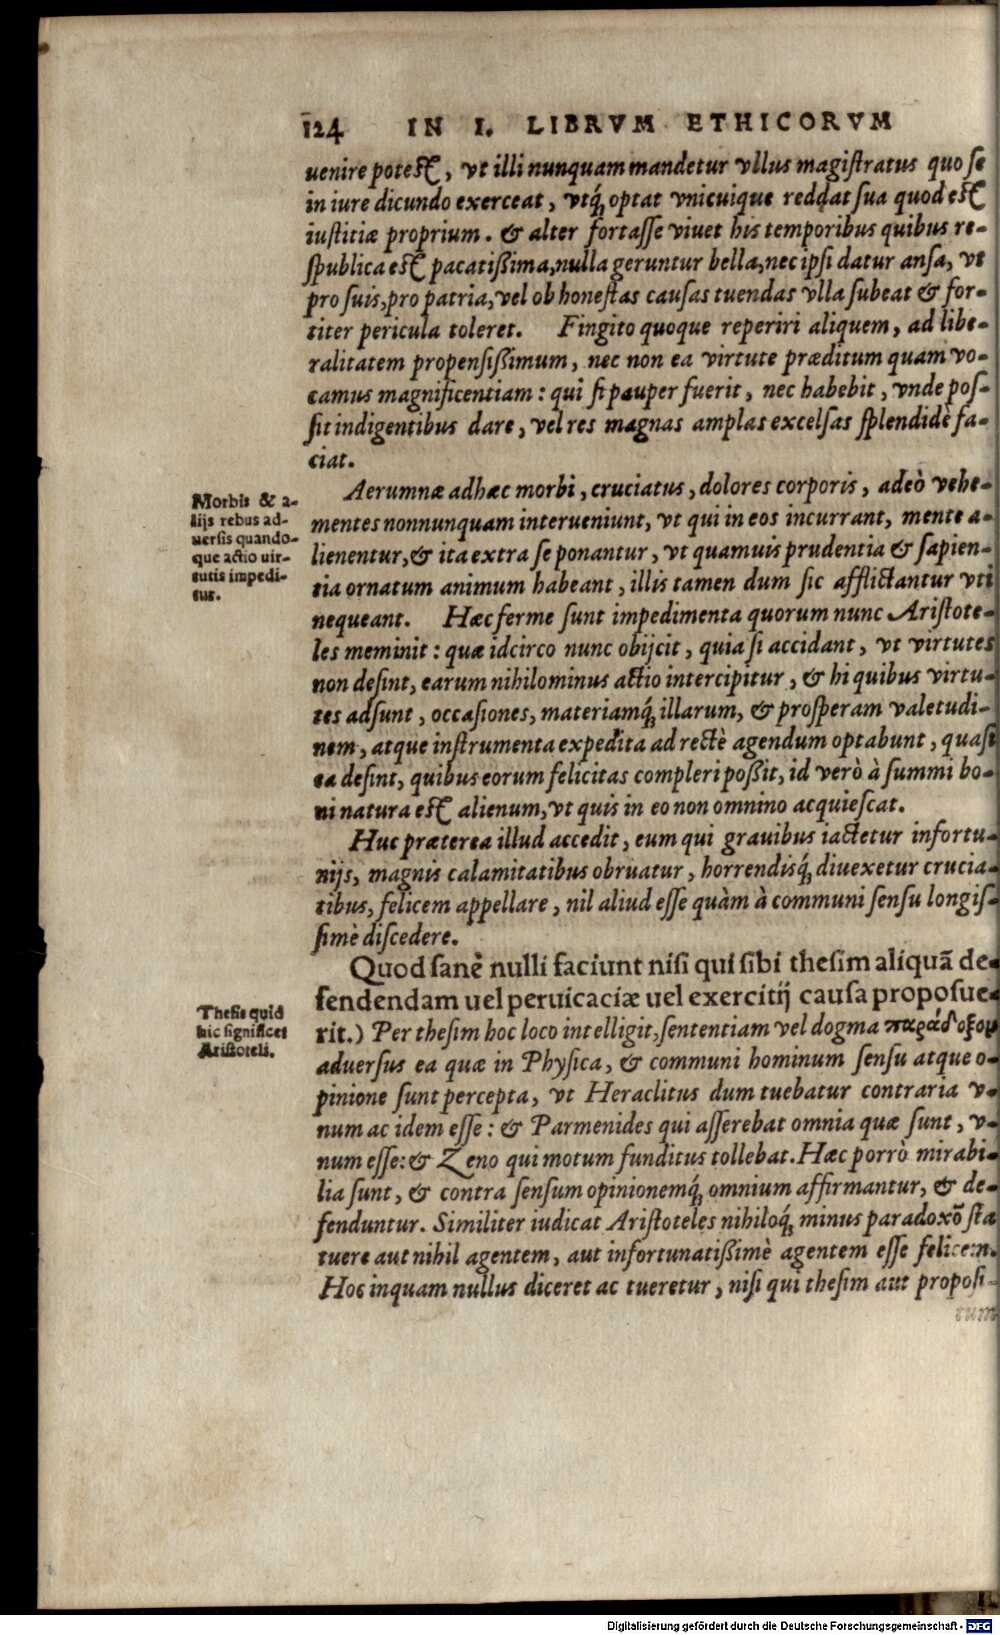 124 IN I. LIBRVM ETHICORVM
uenire potest, vt illi nunquam mandetur vllus magiſtratus quo ſe
in iure dicundo exerceat, vtq́; optat vnicuique reddat ſua quod est
iuſtitiæ proprium. & alter fortaſſe viuet his temporibus quibus re-
ſpublica est pacatißima, nulla geruntur bella, nec ipſi datur anſa, vt
pro ſuis, pro patria, vel ob honeſtas cauſas tuendas vlla ſubeat & for-
titer pericula toleret. Fingito quoque reperiri aliquem, ad libe-
ralitatem propenſißimum, nec non ea virtute præditum quam vo-
camus magnificentiam: qui ſi pauper fuerit, nec habebit, vnde poſ-
ſit indigentibus dare, vel res magnas amplas excelſas ſplendidè fa-
ciat.
Morbis & a-
lijs rebus ad-
uerſis quando-
que actio uir-
tutis impedi-
tur.
Aerumnæ adhæc morbi, cruciatus, dolores corporis, adeò vehe-
mentes nonnunquam interueniunt, vt qui in eos incurrant, mente a-
lienentur, & ita extra ſe ponantur, vt quamuis prudentia & ſapien-
tia ornatum animum habeant, illis tamen dum ſic afflictantur vti
nequeant. Hæc ferme ſunt impedimenta quorum nunc Ariſtote-
les meminit: quæ idcirco nunc obijcit, quia ſi accidant, vt virtutes
non deſint, earum nihilominus actio intercipitur, & hi quibus virtu-
tes adſunt, occaſiones, materiamq́; illarum, & proſperam valetudi-
nem, atque inſtrumenta expedita ad rectè agendum optabunt, quaſi
ea deſint, quibus eorum felicitas compleri poßit, id verò à ſummi bo-
ni natura est alienum, vt quis in eo non omnino acquieſcat.
Huc præterea illud accedit, eum qui grauibus iactetur infortu-
nijs, magnis calamitatibus obruatur, horrendisq́; diuexetur crucia-
tibus, felicem appellare, nil aliud eſſe quàm à communi ſenſu longiſ-
ſimè diſcedere.
Quod ſanè nulli faciunt niſi qui ſibi theſim aliquã de-
fendendam uel peruicaciæ uel exercitij cauſa propoſue-
Theſis quid
hic ſignificet
Ariſtoteli.
rit.) Per theſim hoc loco intelligit, ſententiam vel dogma παράδοξον
aduerſus ea quæ in Phyſica, & communi hominum ſenſu atque o-
pinione ſunt percepta, vt Heraclitus dum tuebatur contraria v-
num ac idem eſſe: & Parmenides qui aſſerebat omnia quæ ſunt, v-
num eſſe: & Zeno qui motum funditus tollebat. Hæc porrò mirabi-
lia ſunt, & contra ſenſum opinionemq́; omnium affirmantur, & de-
fenduntur. Similiter iudicat Ariſtoteles nihiloq́; minus paradoxõ ſta
tuere aut nihil agentem, aut infortunatißimè agentem eſſe felicem.
Hoc inquam nullus diceret ac tueretur, niſi qui theſim aut propoſi-
tum
Digitalisierung gefördert durch die Deutsche Forschungsgemeinschaft - DFG